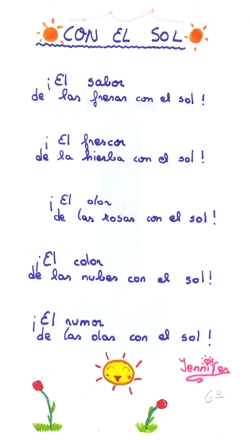 CON EL SOL
¡El sabor
de las fresas con el sol!
¡El frescor
de la hierba con el sol!
¡El olor
de las rosas con el sol!
¡El color
de las nubes con el sol!
¡El rumor
de las olas con el sol!
Jennifer
6º